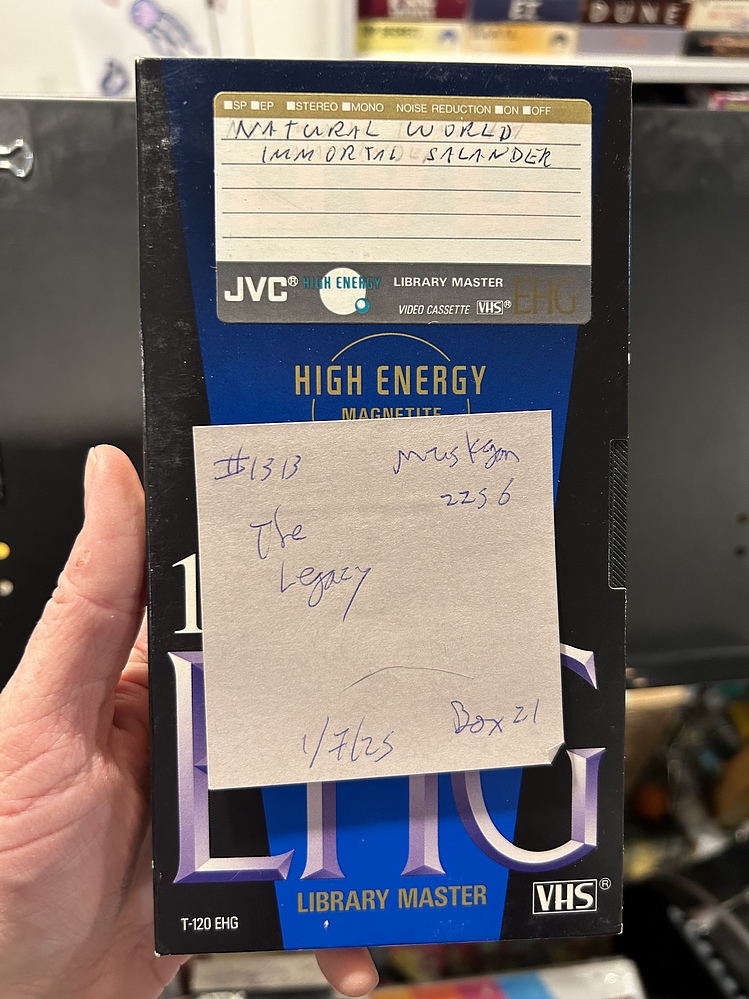 DUNE
■SP ■EP ■STEREO ■MONO NOISE REDUCTION ■ON ■OFF
NATURAL WORLD
IMMORTAL SALANDER
JVC® HIGH ENERGY LIBRARY MASTER
VIDEO CASSETTE VHS® EHG
HIGH ENERGY
MAGNETITE
#1313 Muskegon
2256
The
Legacy
1/7/25 Box 21
EHG
LIBRARY MASTER
T-120 EHG VHS®